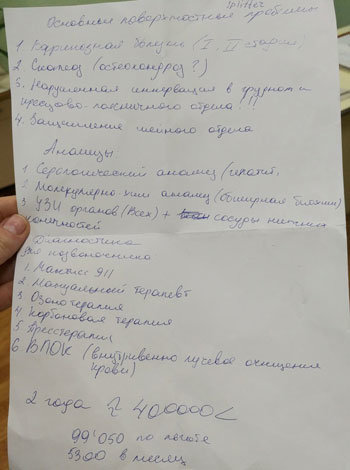 splitter
Основные поверхностные проблемы
1. Варикозная болезнь (I, II стадия)
2. Сколиоз (остеохондроз?)
3. Нарушенная иннервация в грудном и
крестцово-поясничного отдела!!!
4. Защемление шейного отдела
Анализы
1. Серологический анализ (гепатит,
2. Молекулярно-хим анализ (обширная биохим)
3 УЗИ органов (всех) + сосуды нижних
конечностей
Диагностика
позвоночника
1. Мантис 911
2 Мануальный терапевт
3 Озонотерапия
4 Карбоновая терапия
5 Прессотерапия
6 ВЛОК (внутривенно лучевое очищения
крови)
2 года ≈ 400000<
99'050 по льготе
5300 в месяц